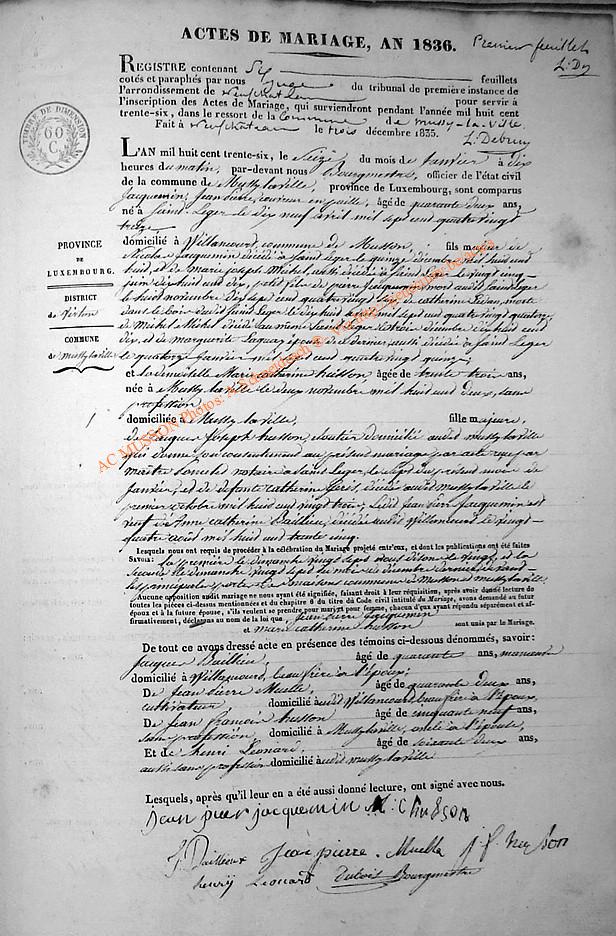 ACTES DE MARIAGE, AN 1836.
Premier feuillet
REGISTRE contenant feuillets
cotés et paraphés par nous juge du tribunal de première instance de
l'arrondissement de Neufchateau pour servir à
l'inscription des Actes de Mariage, qui surviendront pendant l'année mil huit cent
trente-six, dans le ressort de la Commune de Mussy-la-Ville.
Fait à Neufchateau le trois décembre 1835.
TIMBRE DE DIMENSION
60
C.
L'AN mil huit cent trente-six, le Seize du mois de Janvier à dix
heures du matin, par-devant nous Bourgmestre, officier de l'état civil
de la commune de Mussy la ville, province de Luxembourg, sont comparus
Jacquemin, Jean pierre, couvreur en paille, âgé de quarante deux ans,
né à Saint Leger le dix neuf avril mil sept cent quatre vingt
treize
domicilié à Willancourt, commune de Musson, fils majeur de
Nicolas Jacquemin décédé à Saint Leger le quinze décembre mil huit cent
huit, et de Marie Joseph Michel, aussi décédée à Saint Leger le vingt cinq
juin dix huit cent dix, petit fils de pierre Jacquemin, mort audit Saint Leger
le huit novembre dix sept cent quatre vingt six, catherine morte
dans le Saint Leger le dix huit mil sept cent quatre vingt quatorze,
de Michel Michel décédé au même Saint Leger le trois décembre dix huit cent
dix, et de marguerite Laguay épouse de ce dernier, aussi décédée à Saint Leger
le quatorze Janvier mil sept cent quatre vingt quinze
et la demoiselle Marie catherine husson âgée de trente trois ans,
née à Mussy la ville le deux novembre mil huit cent deux, sans
profession
domiciliée à Mussy la ville, fille majeure,
de Jacques Joseph husson, cloutier domicilié audit mussy la ville
qui donne son consentement au présent mariage par acte reçu par
maître notaire à Saint Leger, le sept du présent mois de
Janvier, et de défunte catherine décédée audit mussy la ville le
premier octobre mil huit cent vingt trois, Ledit Jean pierre Jacquemin est
veuf de Anne catherine Baillieu, décédée audit Willancourt le vingt
quatre août mil huit cent trente cinq.
PROVINCE
DE
LUXEMBOURG.
DISTRICT
de Virton
COMMUNE
de Mussy la ville
Lesquels nous ont requis de procéder à la célébration du Mariage projeté entr'eux, et dont les publications ont été faites
SAVOIR: la première le dimanche vingt sept et la
seconde le dimanche vingt sept du mois de décembre dernier devant
les principales portes des maisons communes de Musson et mussy la ville
Aucune opposition audit mariage ne nous ayant été signifiée, faisant droit à leur réquisition, après avoir donné lecture de
toutes les pièces ci-dessus mentionnées et du chapitre 6 du titre du Code civil intitulé du Mariage, avons demandé au futur
époux et à la future épouse, s'ils veulent se prendre pour mari et pour femme, chacun d'eux ayant répondu séparément et affirmativement,
déclarons au nom de la loi que Jean pierre Jacquemin
et marie catherine husson sont unis par le Mariage.
De tout ce avons dressé acte en présence des témoins ci-dessous dénommés, savoir:
Jacques Baillieu, âgé de quarante ans, manoeuvre
domicilié à Willancourt, beau frère à l'époux;
De Jean pierre Muelle âgé de quarante deux ans,
cultivateur domicilié audit Willancourt, beau frère à l'époux,
De Jean françois husson âgé de cinquante neuf ans,
sans profession, domicilié à Mussy la ville, oncle à l'épouse,
Et de henri Léonard âgé de soixante deux ans,
aussi sans profession domicilié audit mussy la ville
Lesquels, après qu'il leur en a été aussi donné lecture, ont signé avec nous.
jean pier jacquemin M: C husson
J. Baillieux Jean pierre Muelle j. f. husson
henrij Leonard Bourgmestre